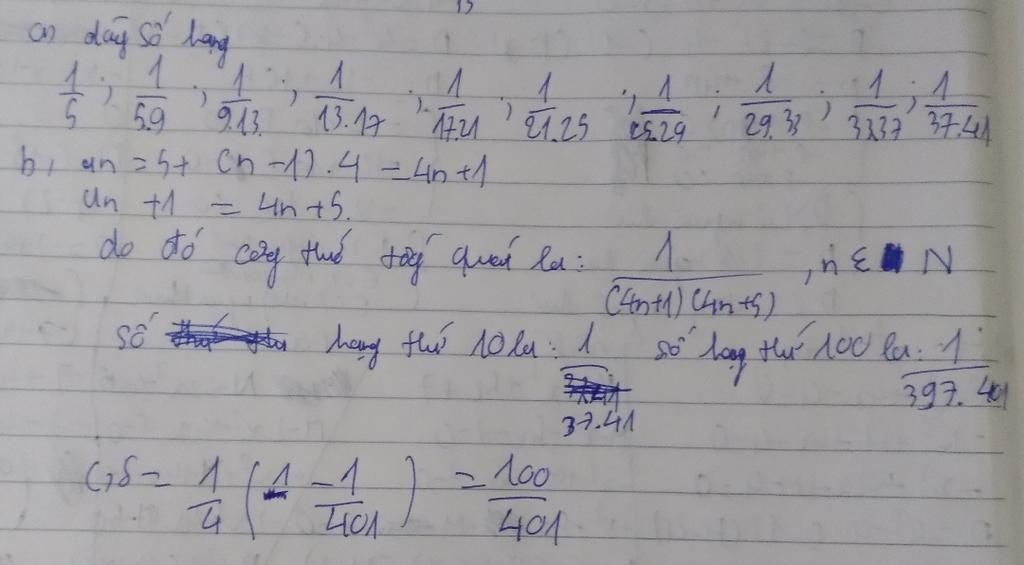 a) dãy số hạng
1/5 ; 1/5.9 ; 1/9.13 ; 1/13.17 ; 1/17.21 ; 1/21.25 ; 1/25.29 ; 1/29.33 ; 1/33.37 ; 1/37.41
b, un = 5 + (n - 1).4 = 4n+1
un +1 = 4n+5.
do đó công thức tổng quát là: 1/(4n+1)(4n+5) , n ∈ N
số hạng thứ 10 là: 1/37.41 số hạng thứ 100 là: 1/397.401
C, S = 1/4 ( 1 - 1/401 ) = 100/401